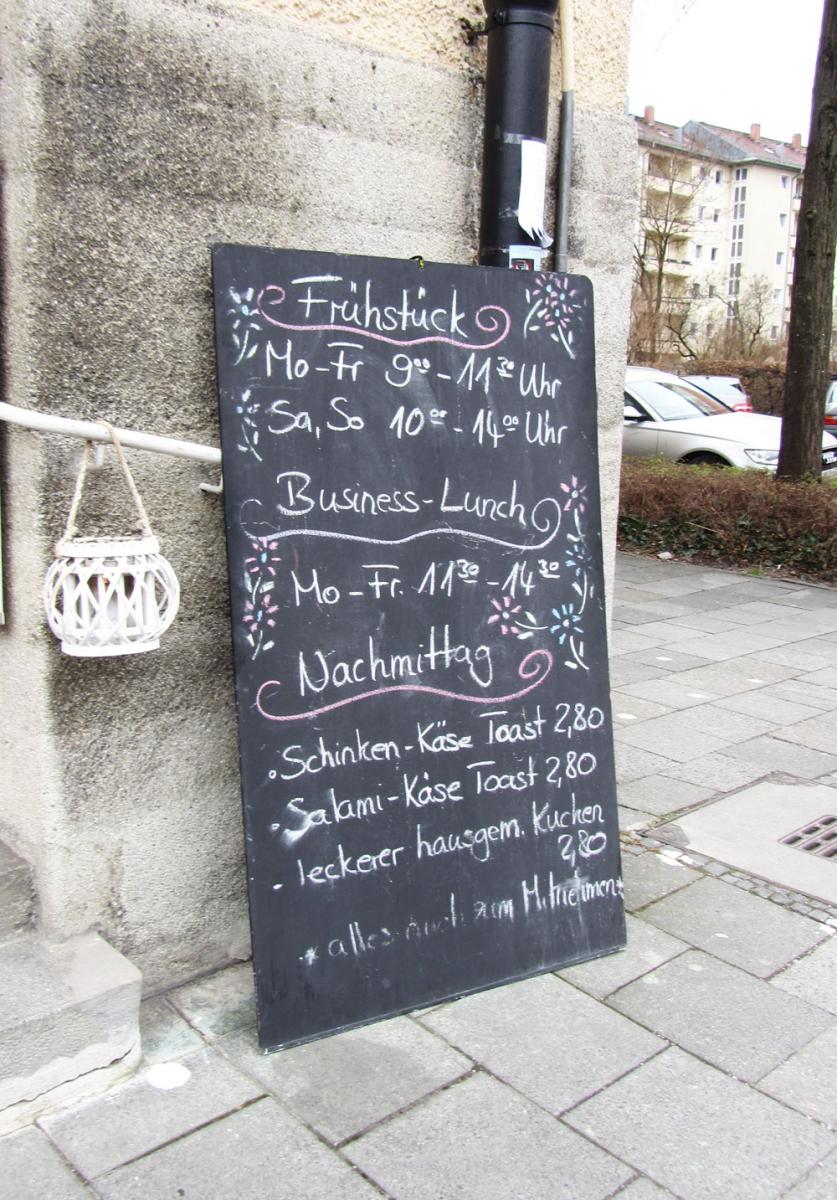 Frühstück
Mo-Fr 9⁰⁰-11³⁰ Uhr
Sa, So 10⁰⁰-14⁰⁰ Uhr
Business-Lunch
Mo-Fr. 11³⁰-14³⁰
Nachmittag
• Schinken-Käse Toast 2,80
• Salami-Käse Toast 2,80
• leckerer hausgem. Kuchen
2,80
* alles auch zum Mitnehmen*